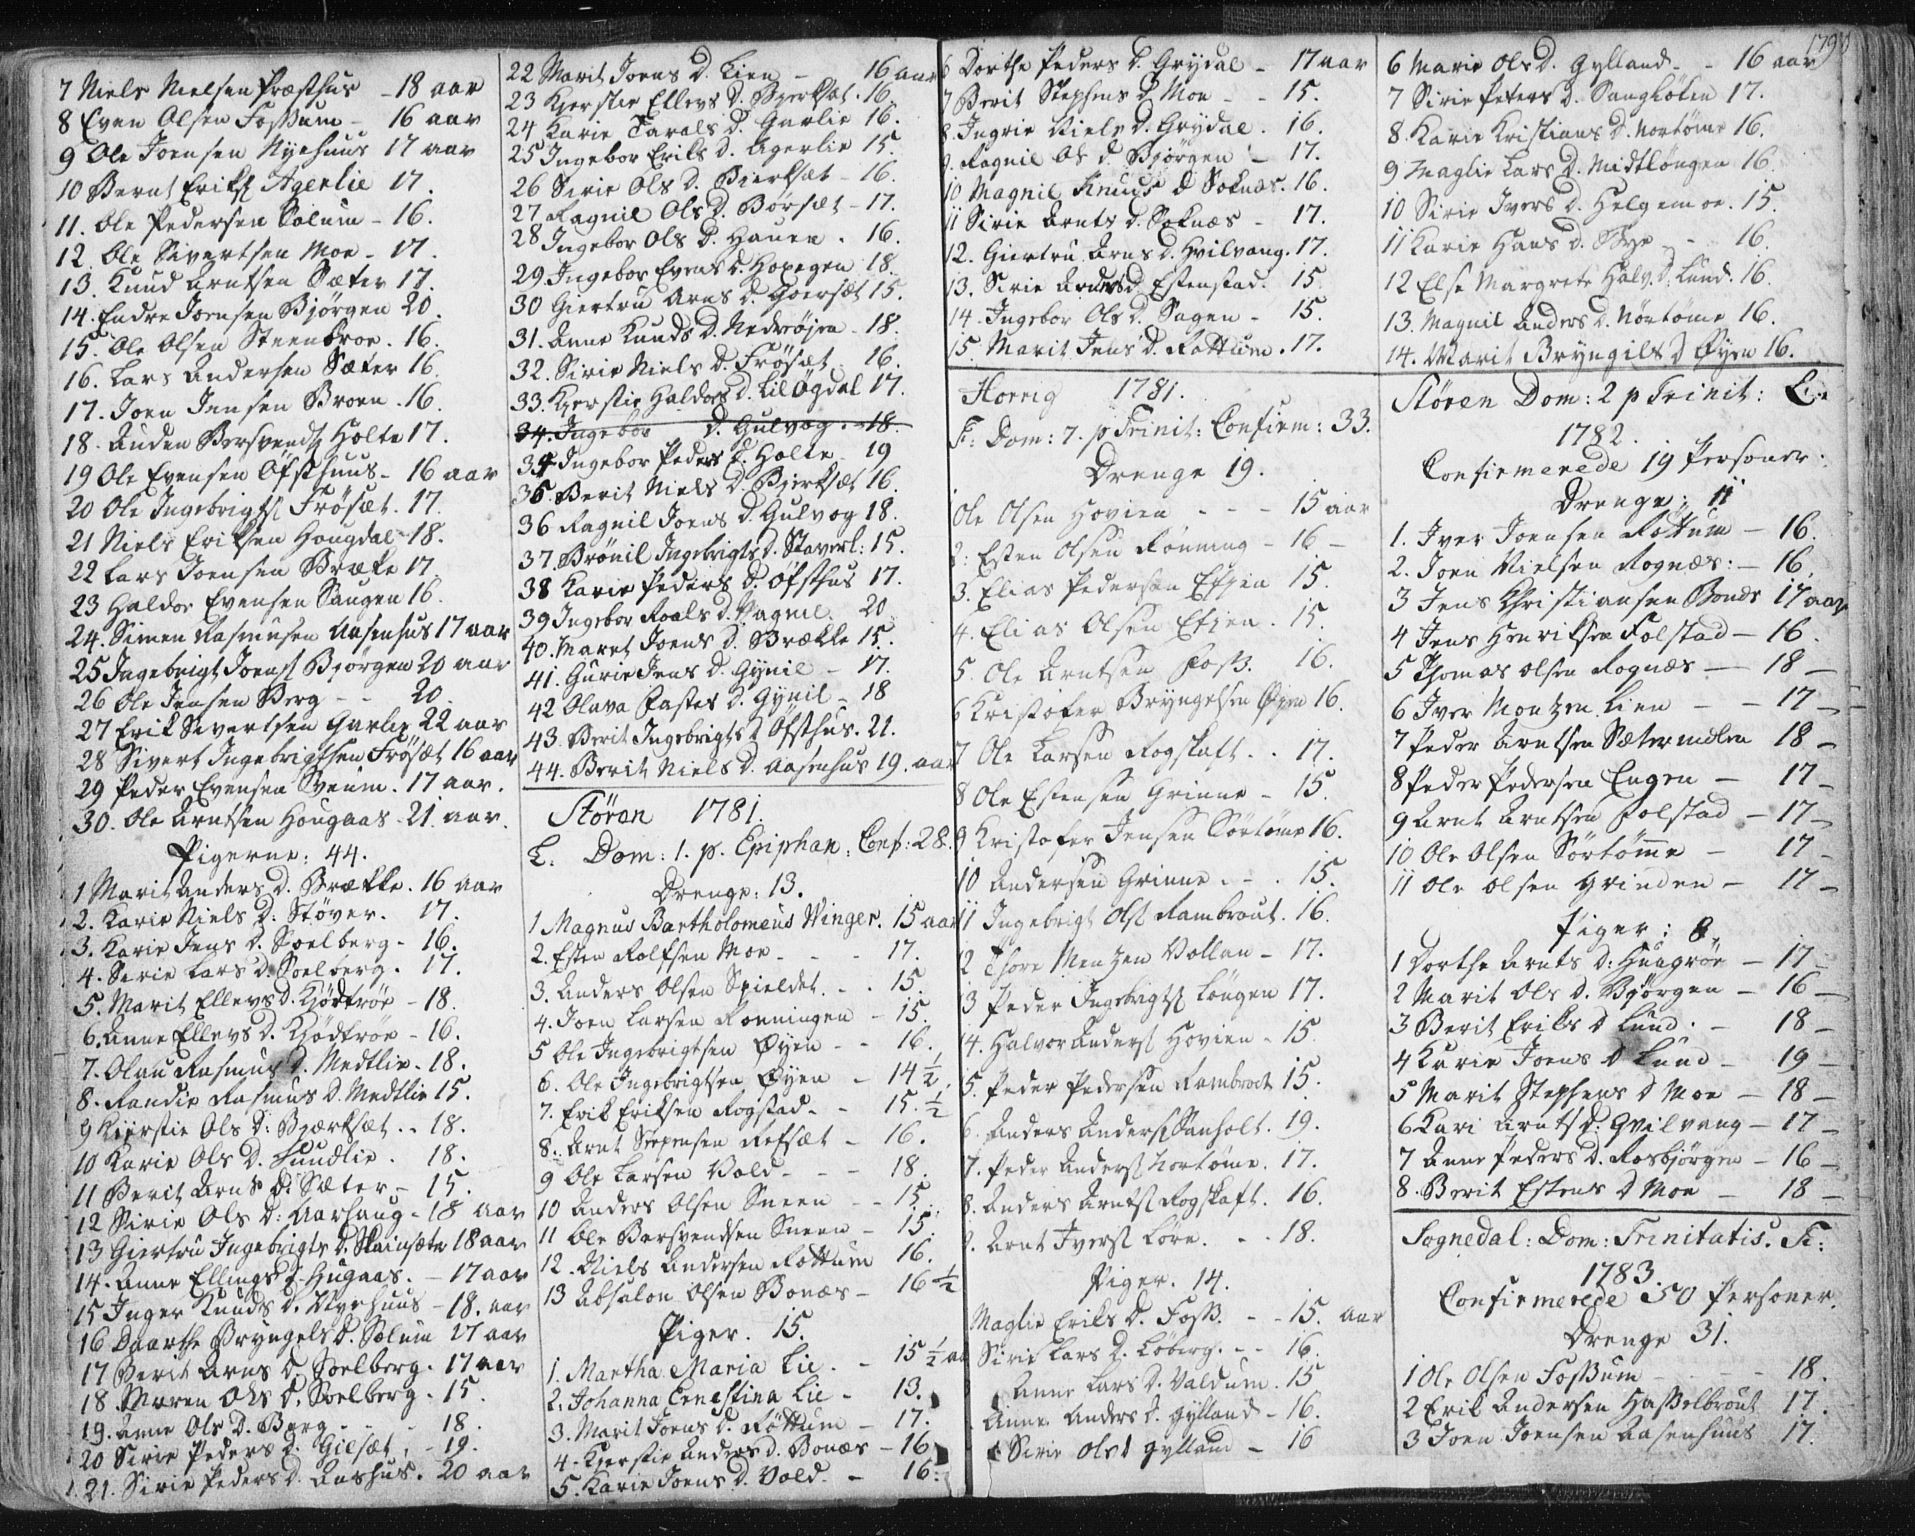 7 Niels Nielsen Præsthus - 18 aar
8 Even Olsen Fossum - 16 aar
9 Ole Joensen Nyehuus 17 aar
10 Bernt Eriks. Agerlie 17.
11. Ole Pedersen Solum - 16.
12. Ole Sivertsen Moe - 17.
13. Knud Arntsen Sæter 17.
14. Endre Joensen Bjørgen 20.
15. Ole Olsen Steenbroe. 16.
16. Lars Andersen Sæter 16.
17. Joen Jensen Broen. 16.
18. Auden Bersvends. Holte 17.
19 Ole Evensen Øfsthuus - 16 aar
20 Ole Ingebrigts. Frøsæt. 17.
21 Niels Eriksen Hougdal - 18.
22 Lars Joensen Brække 17.
23 Haldor Evensen Saugen 16.
24. Simen Rasmusen Aasenhus 17 aar
25 Ingebrigt Joens. Bjørgen 20 aar
26 Ole Jensen Berg - - 20.
27 Erik Sivertsen Garlie 22 aar
28 Sivert Ingebrigtsen Frøsæt 16 aar
29 Peder Evensen Sveum. 17 aar.
30. Ole Arntsen Hougaas - 21 aar.
Pigerne: 44.
1 Marit Anders D. Brække. 16 aar
2. Karie Niels D: Støver. 17.
3. Karie Jens D. Soelberg - 16.
4. Serie Lars D. Soelberg. 17.
5. Marit Ellevs D. Kiødtrøe - 18.
6. Anne Ellevs D. Kiødtrøe - 16.
7. Olau Rasmus D. Medtlie. 18.
8. Randie Rasmus D. Medtlie 15.
9 Kierstie Ols D: Bjerksæt. - 18.
10 Karie Ols D. Sundlie. 18.
11 Berit Arns D. Sæter - 15.
12 Sirie Ols D: Aarhaug - 18 aar
13 Giertru Ingebrigts D. 18 aar
14. Anne Ellings D. Hugaas. - 17 aar
15 Inger Knuds D. Nyehuus - 18. aar
16 Daarthe Bryngels D. Solum 17 aar
17 Berit Arns D. Soelberg. 17 aar
18. Maren Ols D. Soelberg. 15.
19. Anne Ols D. Berg - - 18.
20 Sirie Peders D. Giesæt, - 19.
21. Sirie Peders D. Aashus. 20 aar
22 Marit Joens D. Lien - 16 aar
23 Kjerstie Ellevs D. Bjerksæt. 16.
24 Karie Tarals D. Garlie 16.
25 Ingebor Eriks D. Agerlie 15.
26 Serie Ols D. Bierksæt - 16.
27 Ragnil Ols D. Børsæt - 17.
28 Ingebor Ols D. Hauen. 16.
29. Ingebor Evens D. Hopegen 18.
30 Giertru Arns D. Goersæt 15.
31. Anne Knuds D. Nedrøjen - 18.
32. Sirie Niels D. Frøsæt 16.
33. Kjerstie Haldors D. Lil Øgdal 17.
34. Ingebor D. Gulvog. - 18.
34 Ingebor Peders D. Holte. 19
35. Berit Niels D. Bjerksæt 16.
36 Ragnil Joens D. Gulvog 18.
37. Brønil Ingebrigts D. Staverl: 15.
38 Karie Peders D. Øfsthus 17.
39 Ingebor Roals D. Vagnil. 20
40. Maret Joens D. Brække 15.
41. Gurie Jens D. Gynil - 17.
42 Olava Fastes D. Gynil - 18
43. Berit Ingebrigts D Øfsthus. 21.
44. Berit Niels D. Aasenhus 19. aar
Støren 1781.
L. Dom: 1. p. Epiphan: Conf: 28.
Drenge: 13.
1 Magnus Bartholomeus Winger. 15 aar
2. Esten Rolfsen Moe - - - 17.
3. Anders Olsen Spieldet. - . 15.
4. Joen Larsen Rønningen - 15.
5 Ole Ingebrigtsen Øyen - - 16.
6. Ole Ingebrigtsen Øyen - 14 ½.
7. Erik Eriksen Rogstad. - 15. ½
8. Arnt Estensen Refsæt - 16.
9 Ole Larsen Vold - - - 18.
10 Anders Olsen Sneen - 15.
11 Ole Bersvendsen Sneen - 15
12. Niels Andersen Røttum 16.
13 Absalon Olsen Bonæs - 16 ½
Piger. 15.
1. Martha Maria Lie. - 15 ½ aar
2. Johanna Ernestina Lie - 13.
3. Marit Joens D. Røttum - 17.
4. Kjerstie Anders D. Bonæs - 16
5. Karie Joens D. Vold. - 16.
6 Dorthe Peders D. Grydal - 17 aar
7 Berit Stephens D. Moe - - 15.
8. Ingrie Niels D. Grydal. 16.
9. Ragnil Ols D. Bjørgen - 17.
10. Magnil Knuds D Soknæs. 16.
11 Sirie Arnts D. Soknæs - 17.
12. Giertru Arns D. Hvilvang. 17.
13. Sirie Anders D. Estenstad. 15.
14. Ingebor Ols D. Sagen - 15.
15. Marit Jens D. Røttum. 17.
Horrig 1781.
Fr: Dom: 7. p Trinit: Confirm: 33.
Drenge 19.
Ole Olsen Hovien - - - 15 aar
2. Esten Olsen Rønning - 16 -
3. Elias Pedersen Efjen 15.
4. Elias Olsen Efjen. 15.
5. Ole Arntsen Foss. 16.
6 Kristofer Bryngelsen Øyen 16.
7 Ole Larsen Rogstaft. . 17.
8 Ole Estensen Grinne - 15.
9 Kristofer Jensen Sørtøme 16.
10 Andersen Grinne. - . 15.
11 Ingebrigt Ols. Rambrout. 16.
12 Thore Mentzen Vollan - 17.
13 Peder Ingebrigts. Løngen 17.
14. Halvor Anders. Hovien - 15.
15. Peder Pedersen Rambrout 15.
6. Anders Anders. Sanholt. 19.
7. Peder Anders. Nortøme. 17.
8. Anders Arnts. Rogstaft. 16.
9. Arnt Ivers. Løre. - . 18.
Piger. 14.
Maglie Eriks D. Foss. - - 15. aar
Sirie Lars D. Løberg. - - 16.
Anne Lars D. Valdum. 15
Anne Anders D. Gylland - 16.
Sirie Ols D Gylland - 16
1790
6 Marie Ols D. Gylland - - 16 aar
7 Sirie Peters D. Sangløken 17.
8. Karie Kristians D. Nortøme 16.
9 Maglie Lars D. Midtløngen 16.
10 Sirie Ivers D. Helgemoe. 15.
11 Karie Hans D. Bye - - 16.
12 Else Margrete Halv. D. Lund. 16.
13. Magnil Anders D. Nørtøme 16.
14. Marit Bryngils D Øyen 16.
Støren Dom: 2 p Trinit: L.
1782.
Confirmerede 19 Personer.
Drenge: 11
1. Iver Joensen Røttum - 16.
2. Joen Nielsen Rognæs: - 16.
3 Jens Christiansen Bonæs 17 aar
4 Jens Henriksen Folstad - 16.
5 Thomas Olsen Rognæs - 18 -
6 Iver Montzen Lien - - 17 -
7 Peder Arntsen Sætermelen 18 -
8 Peder Pedersen Engen - 17 -
9 Arnt Arntsen Folstad - 17 -
10 Ole Olsen Sørtømme - 17 -
11 Ole Olsen Grinden - 17 -
Piger: 8
1 Dorthe Arnts D: Huugrøe - 17 -
2 Marit Ols D. Bjørgen - 16 -
3 Berit Eriks D Lund. - 18 -
4 Karie Joens D Lund - 19 -
5 Marit Stephens D Moe - 18 -
6 Kari Arnts D: Gvilvang - 17 -
7 Anne Peders D. Rosbjørgen - 16 -
8. Berit Estens D Moe - 18 -
Sognedal: Dom: Trinitatis. Fr:
1783.
Confirmerede 50 Personer.
Drenge 31.
1 Ole Olsen Fossum - - - 18.
2 Erik Andersen Hasselbrout 17.
3 Joen Joensen Aasenhuus 17.